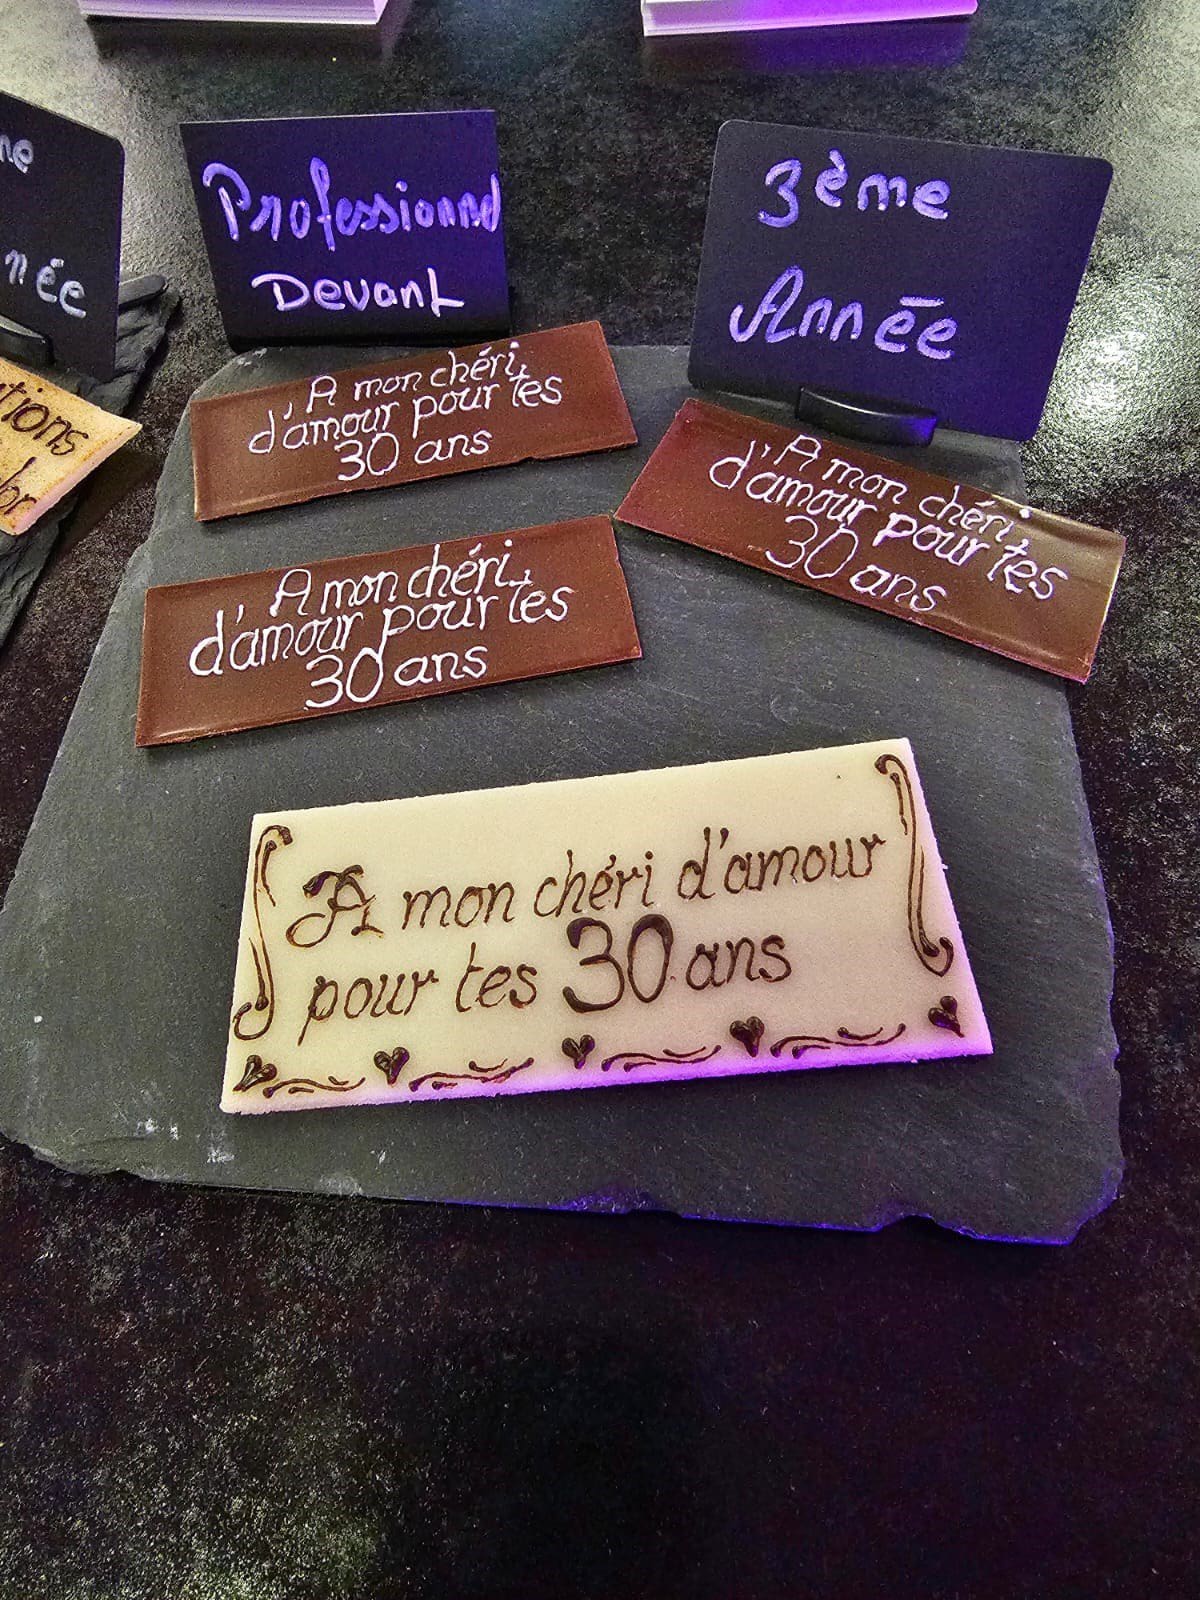 ne
née
Professionnel
Devant
3ème
Année
A mon chéri,
d'amour pour tes
30 ans
A mon chéri,
d'amour pour tes
30 ans
A mon chéri,
d'amour pour tes
30 ans
tions
A mon chéri d'amour
pour tes 30 ans